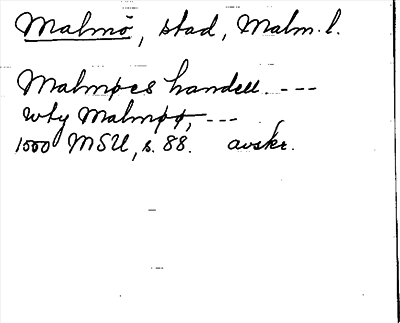 Malmö, stad, Malm. l.
Malmøes handell. ---
wty Malmøø, ---
1500 MSU, s. 88. avskr.